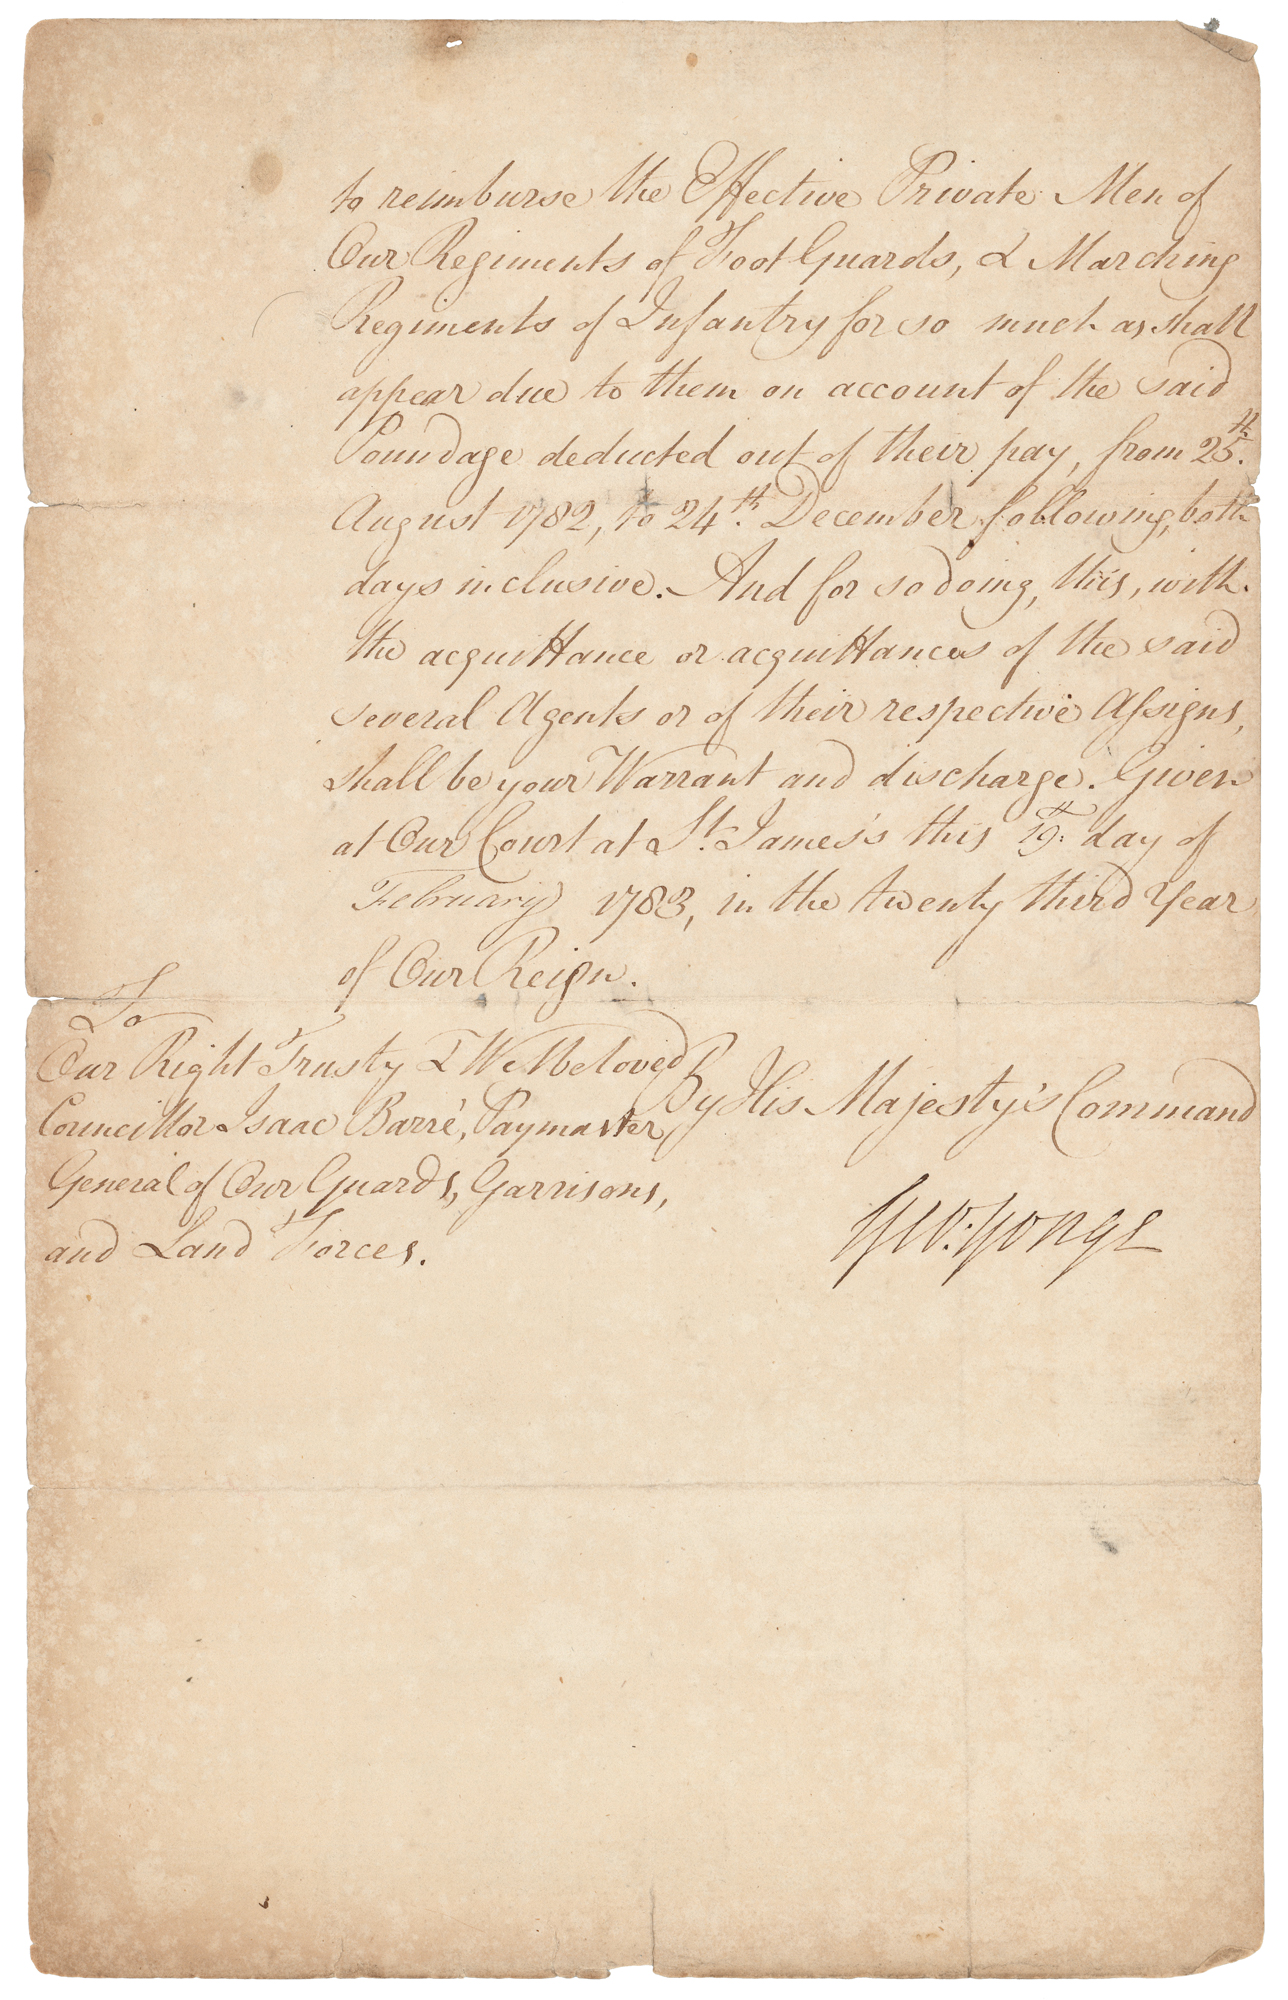 to reimburse the Effective Private Men of
Our Regiments of Foot Guards, & Marching
Regiments of Infantry for so much as shall
appear due to them on account of the said
Poundage deducted out of their pay, from 25th.
August 1782, to 24th. December following, both
days inclusive. And for so doing, this, with
the acquittance or acquittances of the said
several Agents or of their respective Assigns,
shall be your Warrant and discharge. Given
at Our Court at St. James's this 19th: day of
February 1783, in the twenty third Year
of Our Reign.
To
Our Right Trusty & Wellbeloved
Councillor Isaac Barré, Paymaster
General of Our Guards, Garrisons,
and Land Forces.
By His Majesty's Command
Geo: Yonge